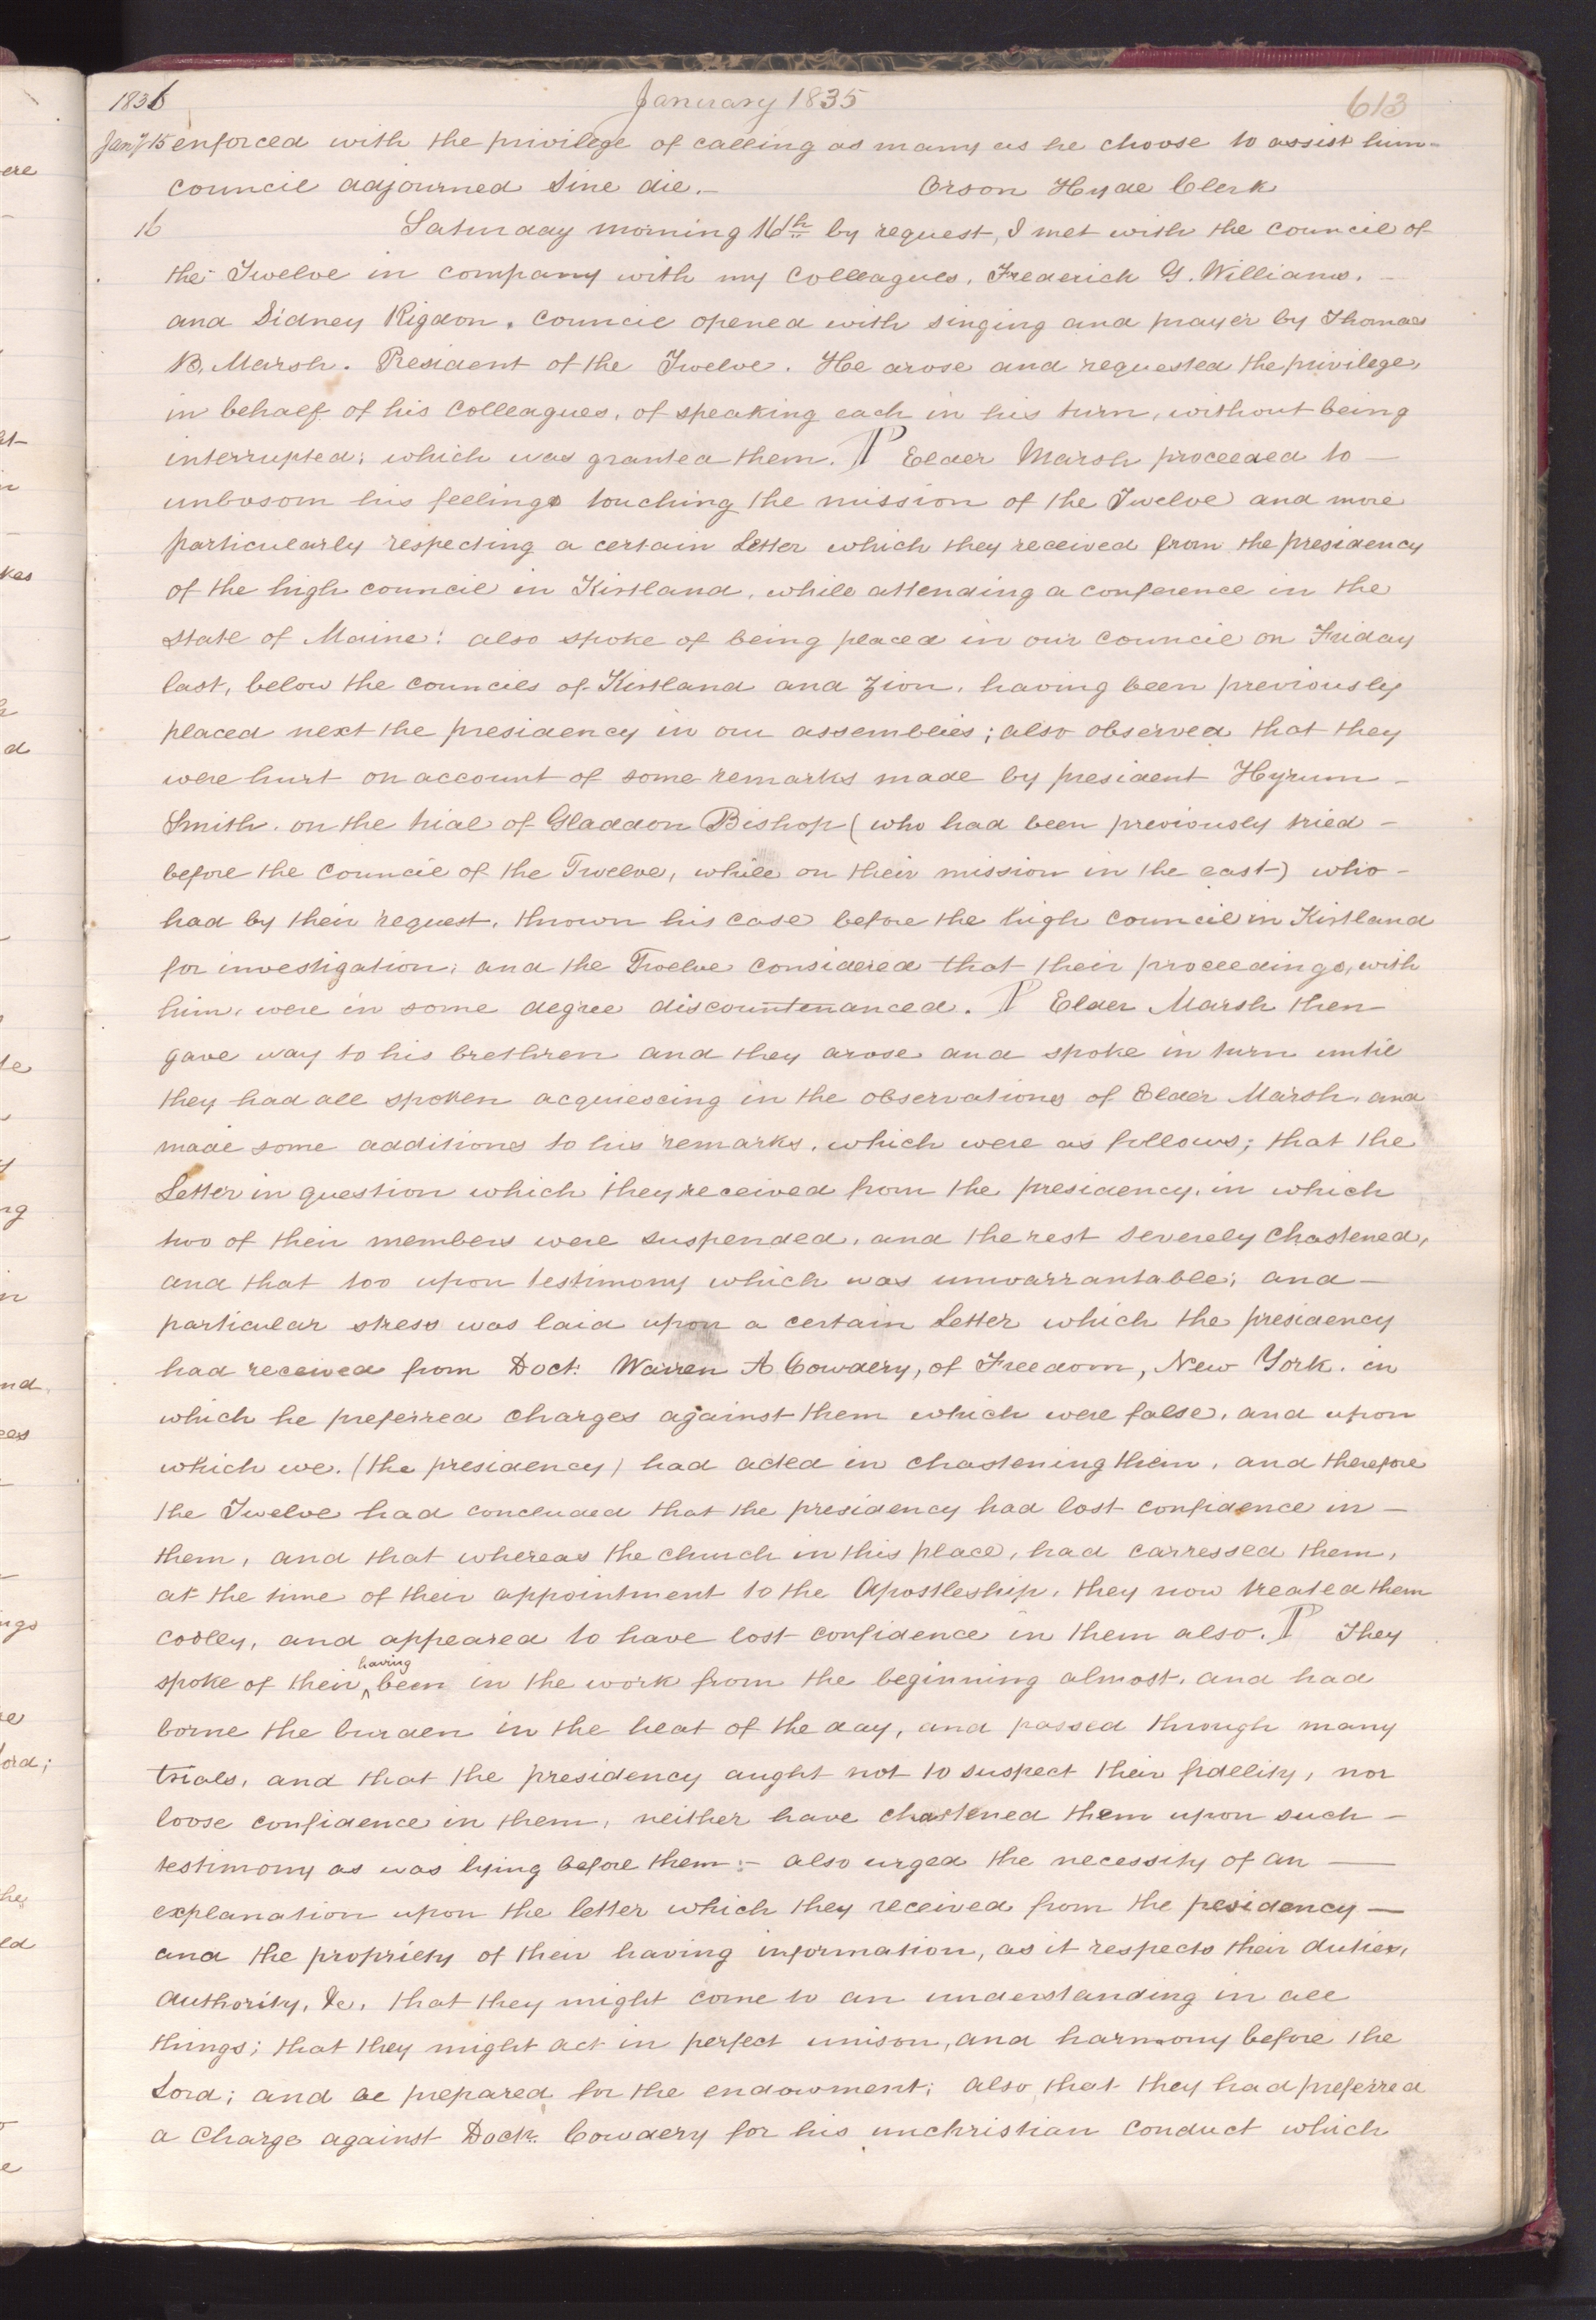 1836 January 1835 613
Jany 15 enforced with the privilege of calling as many as he choose to assist him-
council adjourned sine die.- Orson Hyde Clerk
16 Saturday morning 16th by request, I met with the council of
the Twelve in company with my colleagues, Frederick G. Williams,
and Sidney Rigdon. Council opened with singing and prayer by Thomas
B. Marsh. President of the Twelve. He arose and requested the privilege,
in behalf of his colleagues, of speaking each in his turn, without being
interrupted; which was granted them. ¶ Elder Marsh proceeded to —
unbosom his feelings touching the mission of the Twelve and more
particularly respecting a certain Letter which they received from the presidency
of the high council in Kirtland, while attending a conference in the
State of Maine: also spoke of being placed in our council on Friday
last, below the councils of Kirtland and Zion, having been previously
placed next the presidency in our assemblies; also observed that they
were hurt on account of some remarks made by president Hyrum -
Smith, on the trial of Gladdon Bishop (who had been previously tried -
before the Council of the Twelve, while on their mission in the east) who -
had by their request, thrown his case before the high council in Kirtland
for investigation; and the Twelve considered that their proceedings, with
him, were in some degree discountenanced. ¶ Elder Marsh then
gave way to his brethren and they arose and spoke in turn until
they had all spoken acquiescing in the observations of Elder Marsh, and
made some additions to his remarks, which were as follows; that the
Letter in question which they received from the presidency, in which
two of their members were suspended, and the rest severely chastened,
and that too upon testimony which was unwarrantable; and —
particular stress was laid upon a certain Letter which the presidency
had received from Doct. Warren A Cowdery, of Freedom, New York, in
which he preferred charges against them which were false, and upon
which we, (the presidency) had acted in chastening them, and therefore
the Twelve had concluded that the presidency had lost confidence in —
them, and that whereas the church in this place, had carressed them,
at the time of their appointment to the Apostleship, they now treated them
cooley, and appeared to have lost confidence in them also. ¶ They
spoke of their ^having been in the work from the beginning almost, and had
borne the burden in the heat of the day, and passed through many
trials, and that the presidency aught not to suspect their fidelity, nor
loose confidence in them, neither have chastened them upon such —
testimony as was lying before them:- also urged the necessity of an —
explanation upon the letter which they received from the presidency —
and the propriety of their having information, as it respects their duties,
authority, &c, that they might come to an understanding in all
things; that they might act in perfect unison, and harmony before the
Lord; and be prepared for the endowment; also that they had preferred
a charge against Doctr. Cowdery for his unchristian conduct which